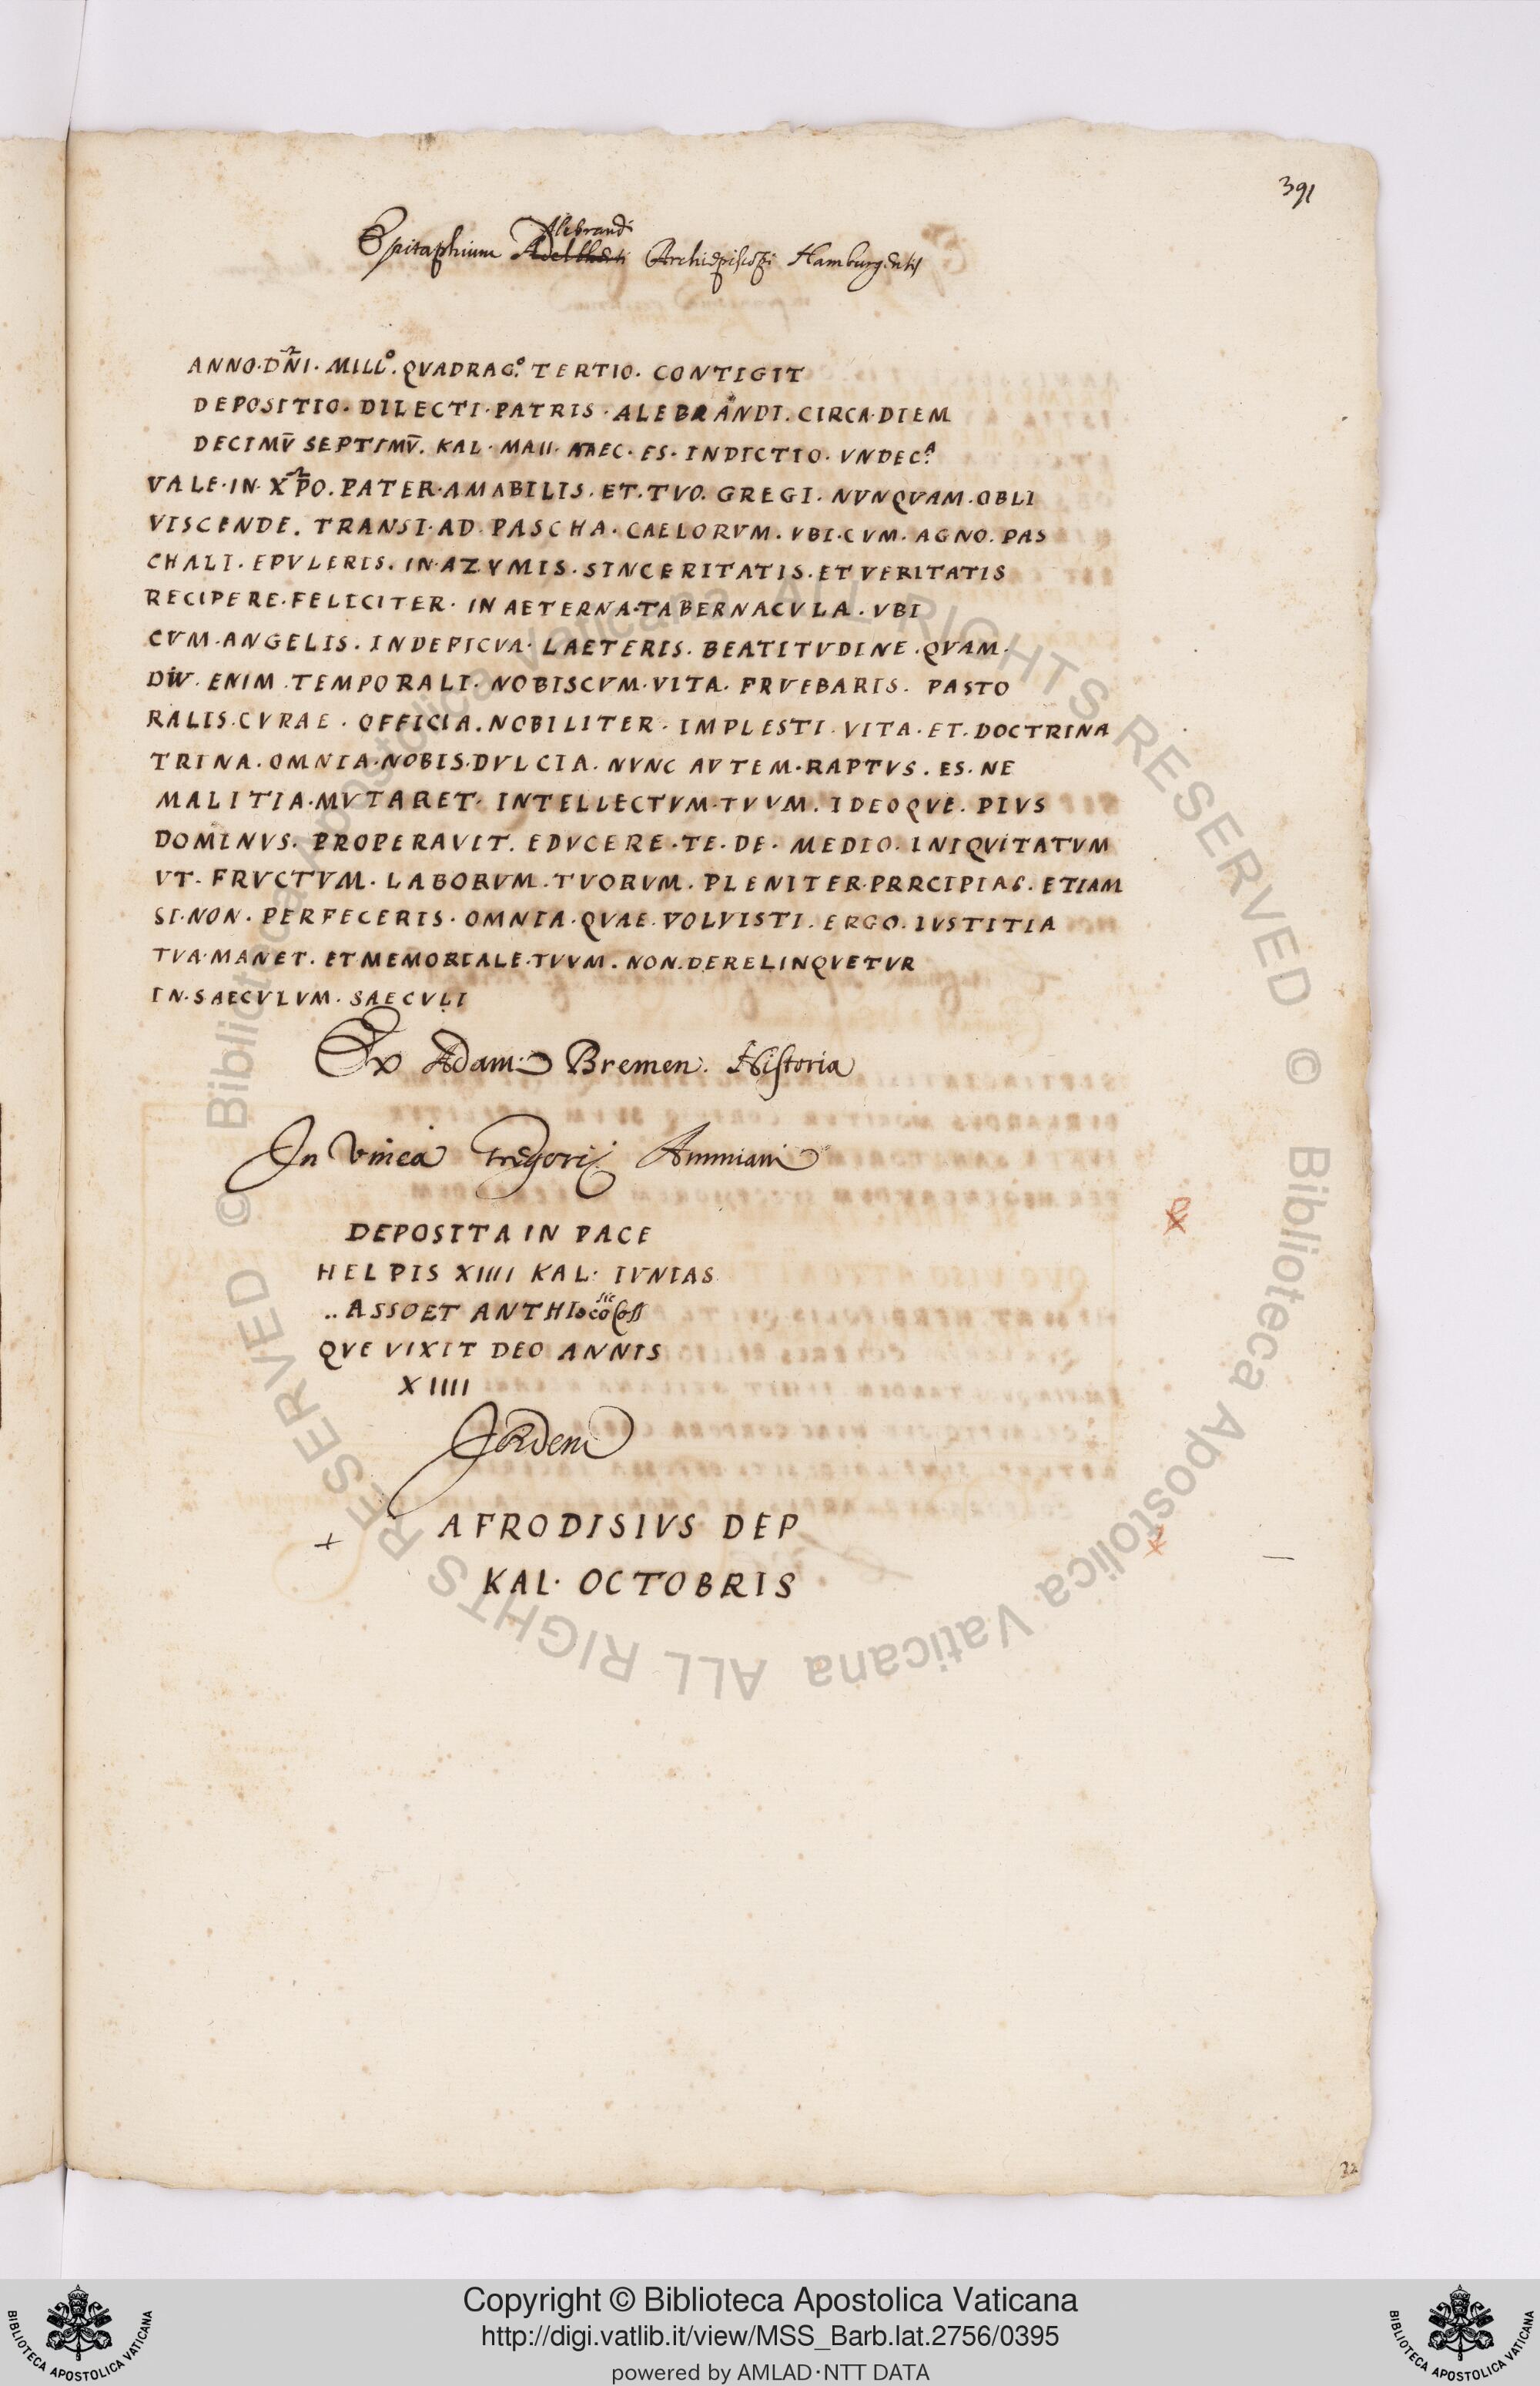 391
Alebrandi
Epitaphium Adelberti Archiepiscopi Hamburgensis
ANNO·DÑI·MILLº.QVADRAG.º TERTIO. CONTIGIT
DEPOSITIO. DILECTI·PATRIS·ALEBRANDI.CIRCA·DIEM
DECIMV̄ SEPTIMV̄. KAL·MAII· HAEC·ES·INDICTIO·VNDEC.ᴬ
VALE·IN·XP̃O.PATER·AMABILIS.ET.TVO.GREGI.NVNQVAM.OBLI
VISCENDE. TRANSI·AD·PASCHA·CAELORVM.VBI·CVM.AGNO.PAS
CHALI.EPVLERIS.IN·AZYMIS.SINCERITATIS.ET VERITATIS
RECIPERE.FELICITER·IN AETERNA·TABERNACVLA.VBI
CVM·ANGELIS.INDEFICVA·LAETERIS.BEATITVDINE.QVAM·
DIV.ENIM.TEMPORALI·NOBISCVM·VITA.FRVEBARIS. PASTO
RALIS.CVRAE.OFFICIA.NOBILITER·IMPLESTI.VITA.ET.DOCTRINA
TRINA.OMNIA·NOBIS·DVLCIA.NVNC AVTEM·RAPTVS.ES.NE
MALITIA·MVTARET·INTELLECTVM·TVVM.IDEOQVE.PIVS
DOMINVS.PROPERAVIT.EDVCERE·TE·DE·MEDIO.INIQVITATVM
VT·FRVCTVM·LABORVM.TVORVM.PLENITER·PRRCIPIAS.ETIAM
SI·NON.PERFECERIS·OMNIA·QVAE·VOLVISTI.ERGO.IVSTITIA
TVA·MANET.ET MEMORIALE·TVVM.NON.DERELINQVETVR
IN·SAECVLVM.SAECVLI
Ex Adam. Bremen. Historia
In Vinea Gregorij Ammiani
DEPOSITA IN PACE
HELPIS XIIII KAL· IVNIAS
sic
..ASSO ET ANTHIOCO Coss
QVE VIXIT DEO ANNIS
XIIII
Ibidem
AFRODISIVS DEP
KAL· OCTOBRIS
© Biblioteca Apostolica Vaticana ALL RIGHTS RESERVED © Biblioteca Apostolica Vaticana ALL RIGHTS RESERVED
Copyright © Biblioteca Apostolica Vaticana
http://digi.vatlib.it/view/MSS_Barb.lat.2756/0395
powered by AMLAD·NTT DATA
BIBLIOTECA APOSTOLICA VATICANA
BIBLIOTECA APOSTOLICA VATICANA